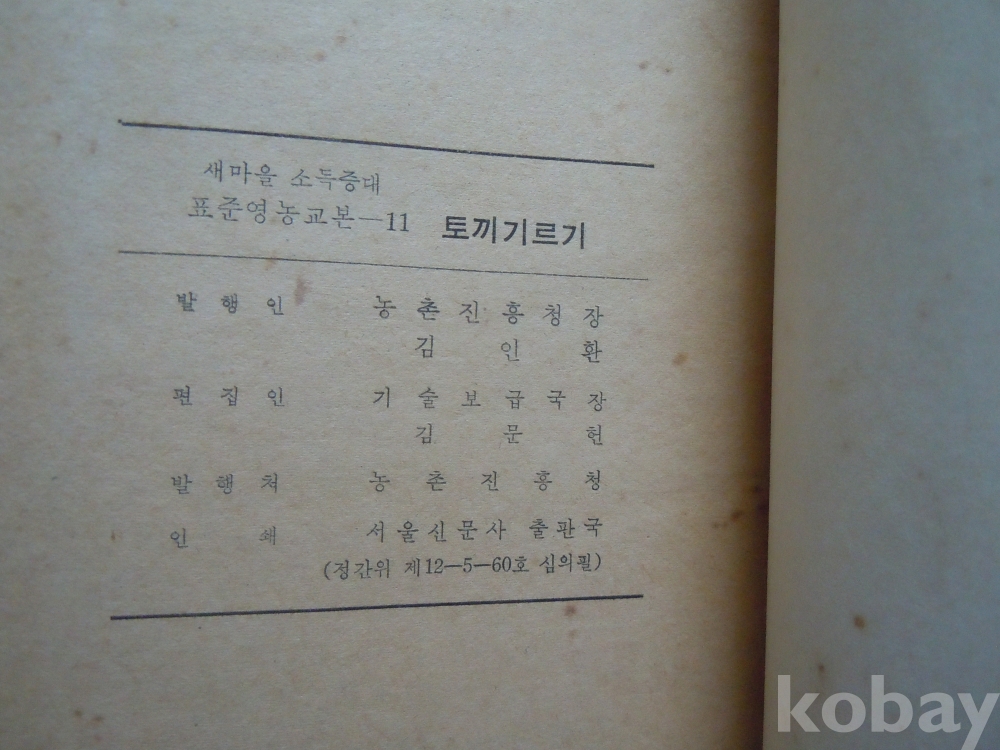 새마을 소득증대
표준영농교본—11 토끼기르기
발행인 농촌진흥청장
김인환
편집인 기술보급국장
김문헌
발행처 농촌진흥청
인쇄 서울신문사 출판국
(정간위 제12—5—60호 심의필)
kobay